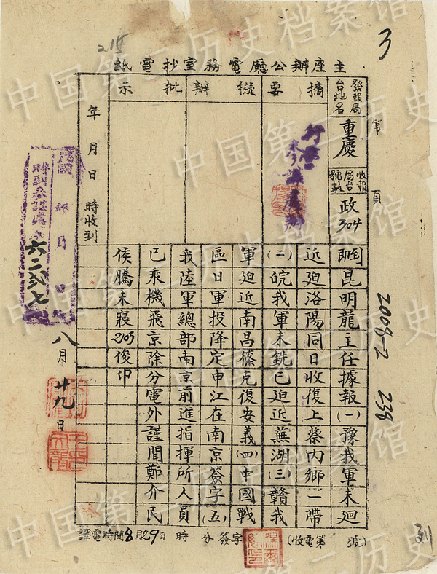 3
215
主座辦公廳電務室抄電紙
重慶
政
304
摘要
擬辦
批示
昆明龍主任據報(一)豫我軍未迴
近迫洛陽同日收復上蔡內鄉一帶
(二)皖我軍未銑已迫近蕪湖(三)贛我
軍迫近南昌榛克復安義(四)中國戰
區日軍投降定申江在南京簽字(五)
我陸軍總部南京前進指揮所人員
已乘機飛京除分電外謹聞鄭介民
侯騰未寢203俊印
年月日時收到
八月廿九日
譯電時間8月29日 時 分簽字
(收電第 號)
2008-2 238
中国第二历史档案馆